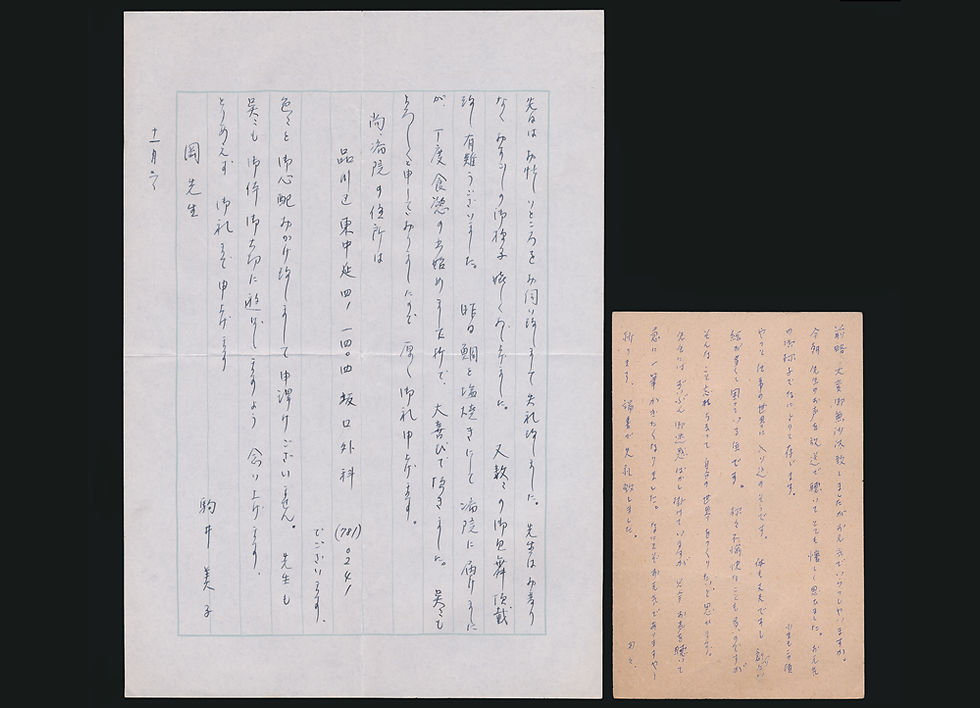 先日はお忙しいところをお伺い致しまして失礼致しました。先生はお変り
なくお過しの御様子嬉しく存じ上げました。又数々の御見舞頂戴
致し有難うございました。昨日鯛を塩焼きにして病院に届けました
が、丁度食慾の出始めました折で、大喜びで頂きました。呉々も
よろしくと申しておりましたので厚く御礼申上げます。
尚病院の住所は
品川区東中延四ノ一四〇四 坂口外科 (781)0241
でございます。
色々と御心配おかけ致しまして申訳けございません。先生も
呉々も御体御大切に遊ばしますよう念り上げます。
とりあえず御礼まで申上げます
駒井美子
岡先生
十一月六日
前略 大変御無沙汰致しましたがお元気でいらっしゃいますか。
今朝先生のお声を放送で聴いてとても懐しく思いました。お元気
の御様子でなによりと存じます。
やっと仕事の世界に入り込めそうです。体も丈夫ですし
絵が書くて困っている位です。不愉快なことも多いのですが
そんなこと忘れちまって自分の世界をつくりたいと思います。
先生にはずいぶん御迷惑ばかし掛けていますが お声を聴いて
急に一筆かきたくなりました。
祈ります。端書で失礼致しました。